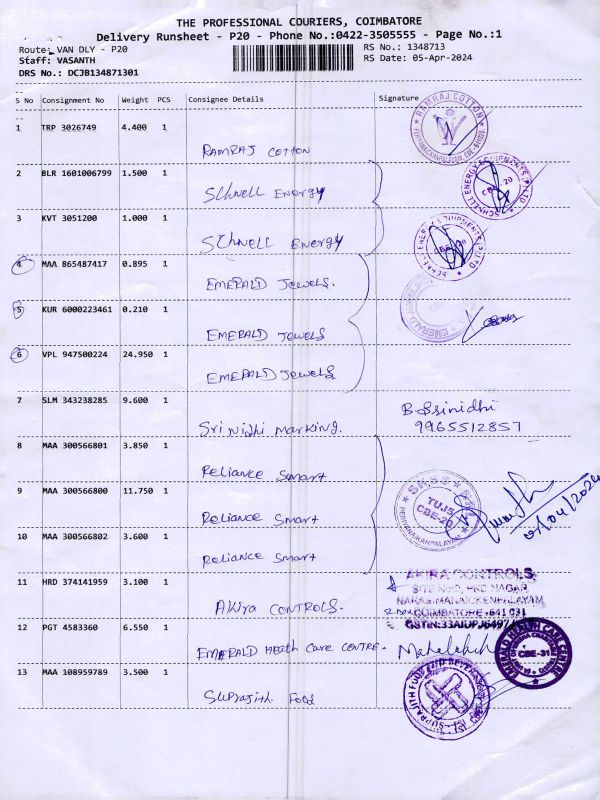 THE PROFESSIONAL COURIERS, COIMBATORE
Delivery Runsheet - P20 - Phone No.:0422-3505555 - Page No.:1
Route: VAN DLY - P20
RS No.: 1348713
Staff: VASANTH
RS Date: 05-Apr-2024
DRS No.: DCJB134871301
S No Consignment No Weight PCS Consignee Details Signature
1 TRP 3026749 4.400 1
RAMRAJ COTTON
RAMRAJ COTTON
2 BLR 1601006799 1.500 1
SCHNELL ENERGY
SCHNELL ENERGY EQUIPMENTS (P) LTD
CBE - 20
3 KVT 3051200 1.000 1
SCHNELL ENERGY
SCHNELL ENERGY EQUIPMENTS (P) LTD
CBE - 20
4 MAA 865487417 0.895 1
EMERALD JEWELS.
5 KUR 6000223461 0.210 1
EMERALD JEWELS
EMERALD
6 VPL 947500224 24.950 1
EMERALD JEWELS
7 SLM 343238285 9.600 1
Srinidhi Marking.
B. Srinidhi
9965512857
8 MAA 300566801 3.850 1
Reliance Smart
9 MAA 300566800 11.750 1
Reliance Smart
TUJ5
CBE-20
PERIYANAIKANPALAYAM
10 MAA 300566802 3.600 1
Reliance Smart
11 HRD 374141959 3.100 1
Akira CONTROLS.
AKIRA CONTROLS,
COIMBATORE - 641 031
12 PGT 4583360 6.550 1
EMERALD Heath Care CENTRE.
EMERALD HEALTH CARE CENTRE
CBE-31
13 MAA 108959789 3.500 1
Suprajith Food
SUPRAJITH FOOD AND BEVERAGES